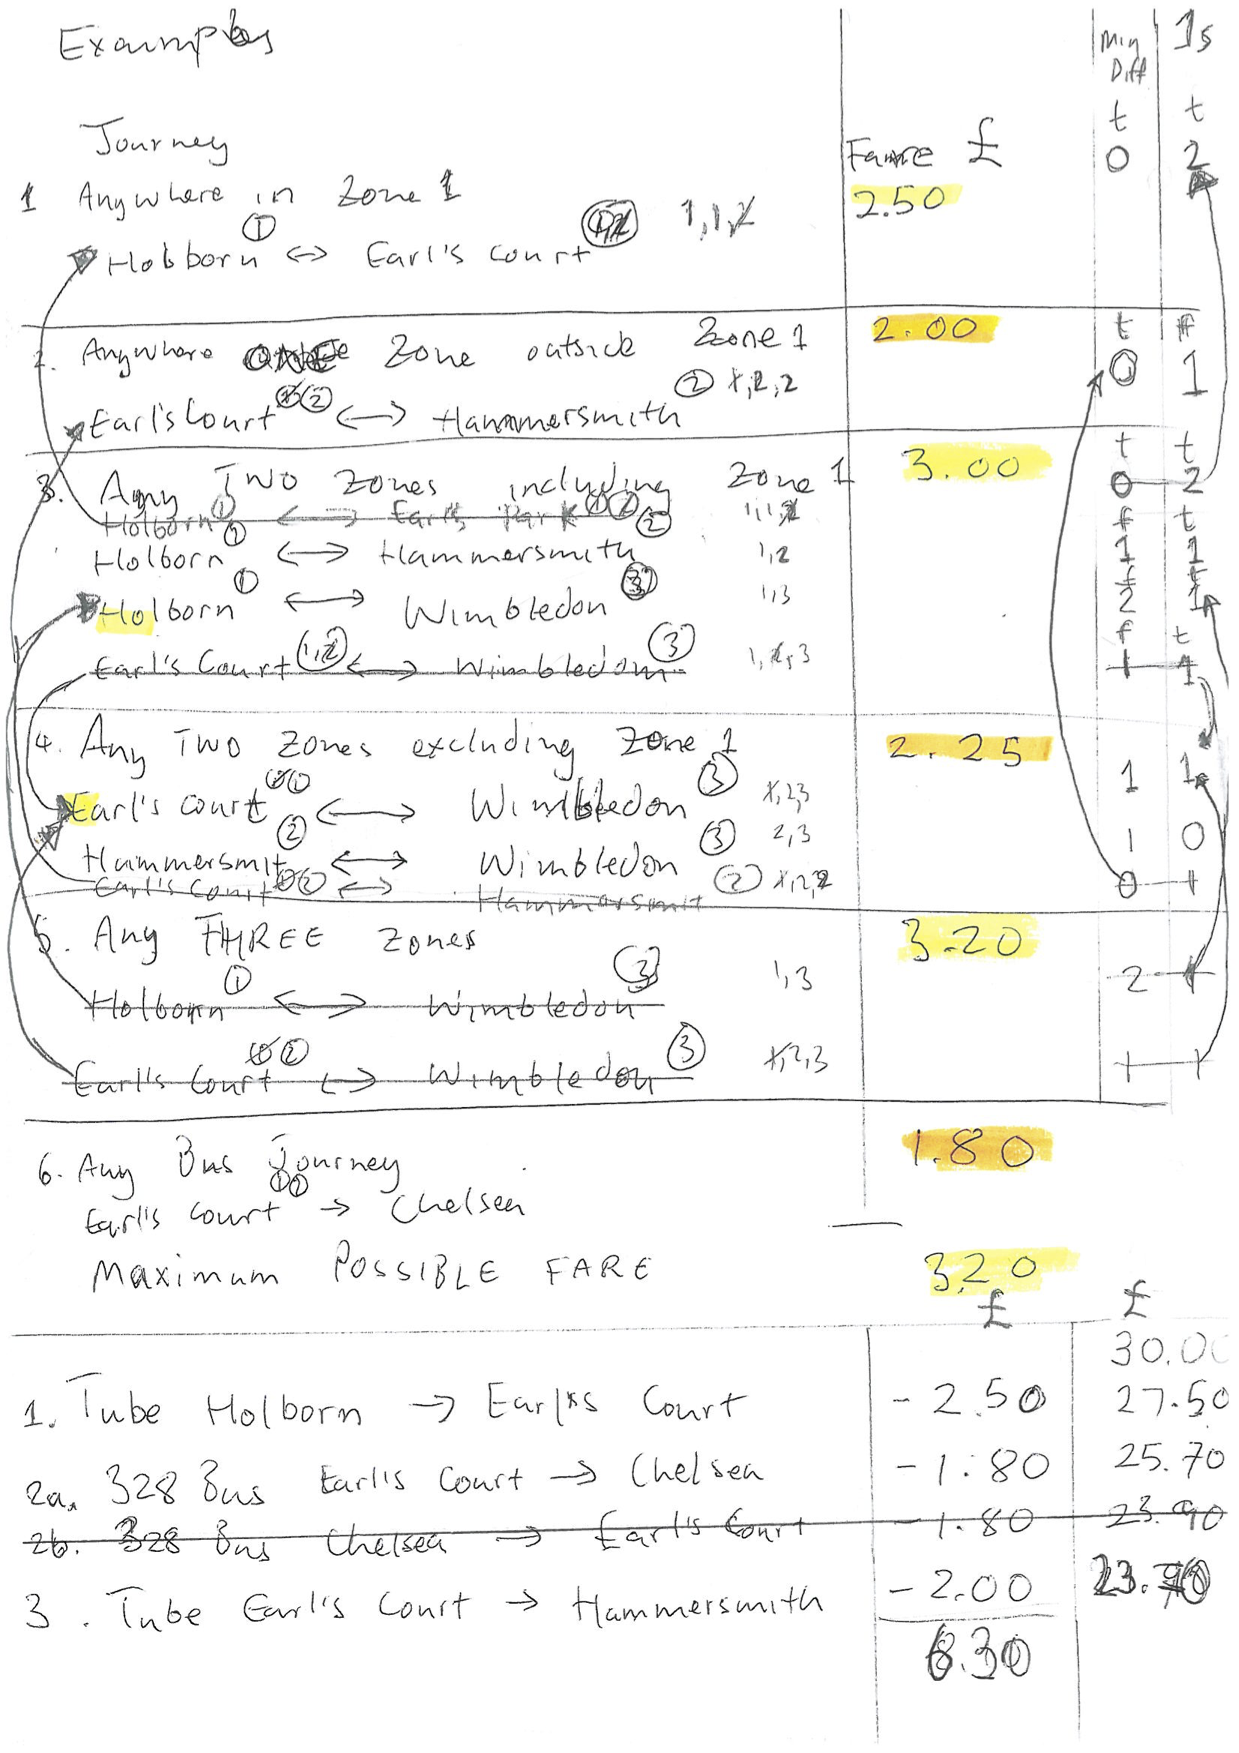 Examples
Min Diff
1s
t t
Journey
Fare £
0 2
1 Anywhere in Zone 1
2.50
① 1,1,2
Holborn <-> Earl's Court
2. Anywhere ONE Zone outside Zone 1
2.00
t f
② ② 1,2,2
0 1
Earl's Court <-> Hammersmith
3. Any TWO Zones including Zone 1
3.00
t t
0 2
Holborn ① <-> Earl's Park ①② 1,1,2
f t
Holborn ① <-> Hammersmith ② 1,2
1 1
Holborn ① <-> Wimbledon ③ 1,3
2 1
f t
Earl's Court 1,2 <-> Wimbledon ③ 1,2,3
1 1
4. Any TWO Zones excluding Zone 1
2.25
Earl's court <-> Wimbledon ③ 1,2,3
1 1
Hammersmit ② <-> Wimbledon ③ 2,3
1 0
Earl's Court ①② <-> Hammersmit ② 1,2,2
0 1
5. Any THREE Zones
3.20
Holborn ① <-> Wimbledon ③ 1,3
2 1
Earl's Court ①② <-> Wimbledon ③ 1,2,3
1 1
6. Any Bus Journey
1.80
①②
Earl's Court -> Chelsea
Maximum POSSIBLE FARE
3.20
£ £
30.00
1. Tube Holborn -> Earl's Court - 2.50 27.50
2a. 328 Bus Earl's Court -> Chelsea - 1.80 25.70
2b. 328 Bus Chelsea -> Earl's Court - 1.80 23.90
3. Tube Earl's Court -> Hammersmith - 2.00 23.70
6.30